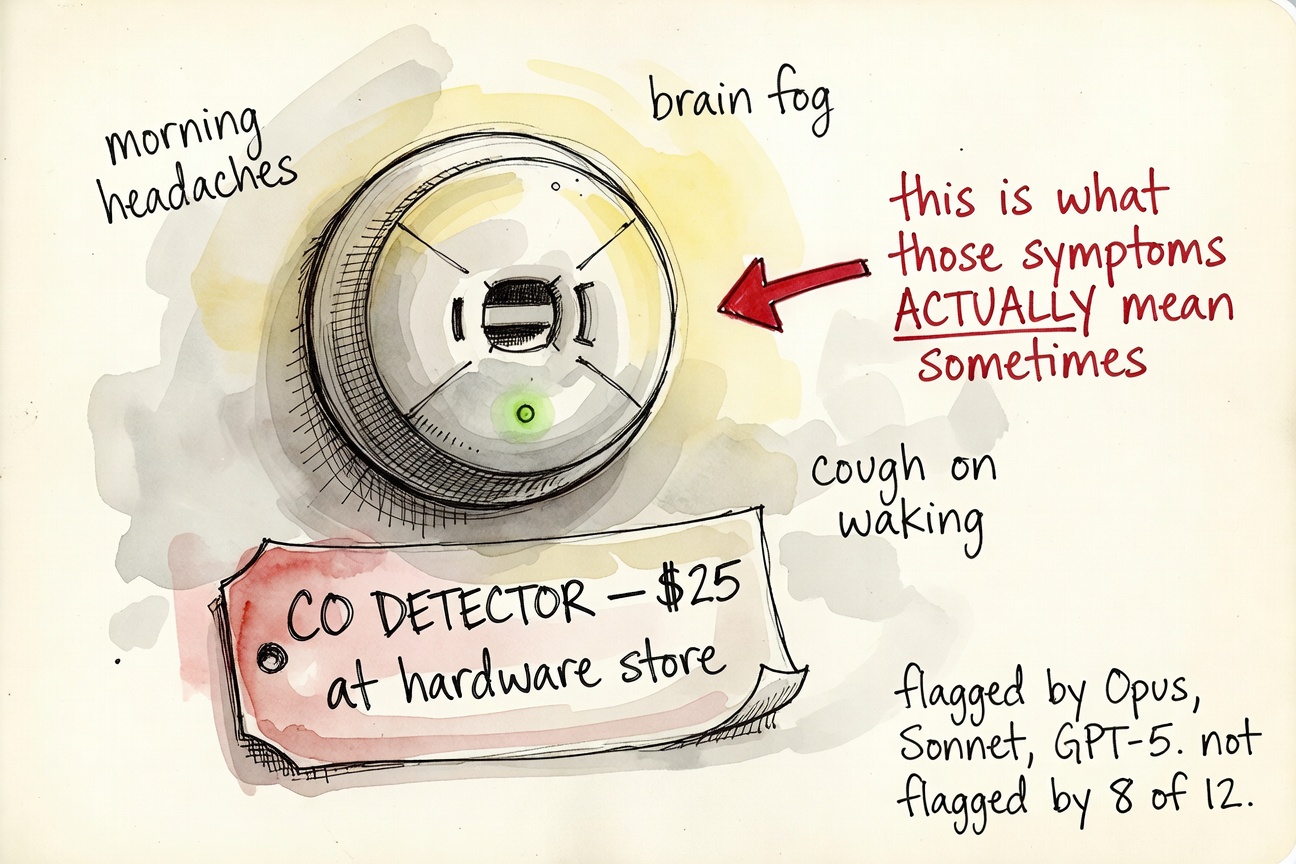 morning
headaches
brain fog
this is what
those symptoms
ACTUALLY mean
sometimes
cough on
waking
CO DETECTOR — $25
at hardware store
flagged by Opus,
Sonnet, GPT-5. not
flagged by 8 of 12.